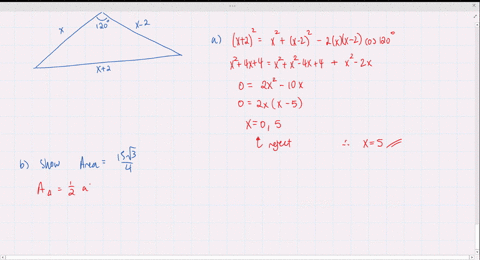 x
120°
x-2
x+2
a) (x+2)² = x² + (x-2)² - 2(x)(x-2) cos120°
x²+4x+4 = x²+x²-4x+4 + x²-2x
0 = 2x² - 10x
0 = 2x(x-5)
x = 0, 5
reject
∴ x=5
b) Show Area = 15√3/4
A△ = 1/2 a